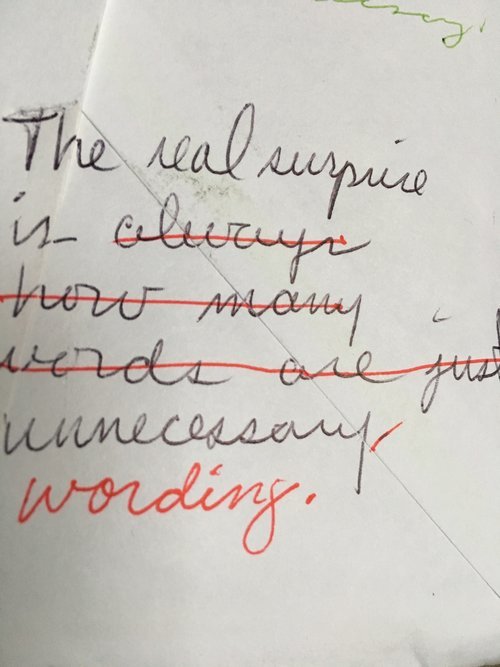 The real surprise
is always
how many
words are just
unnecessary
wording.